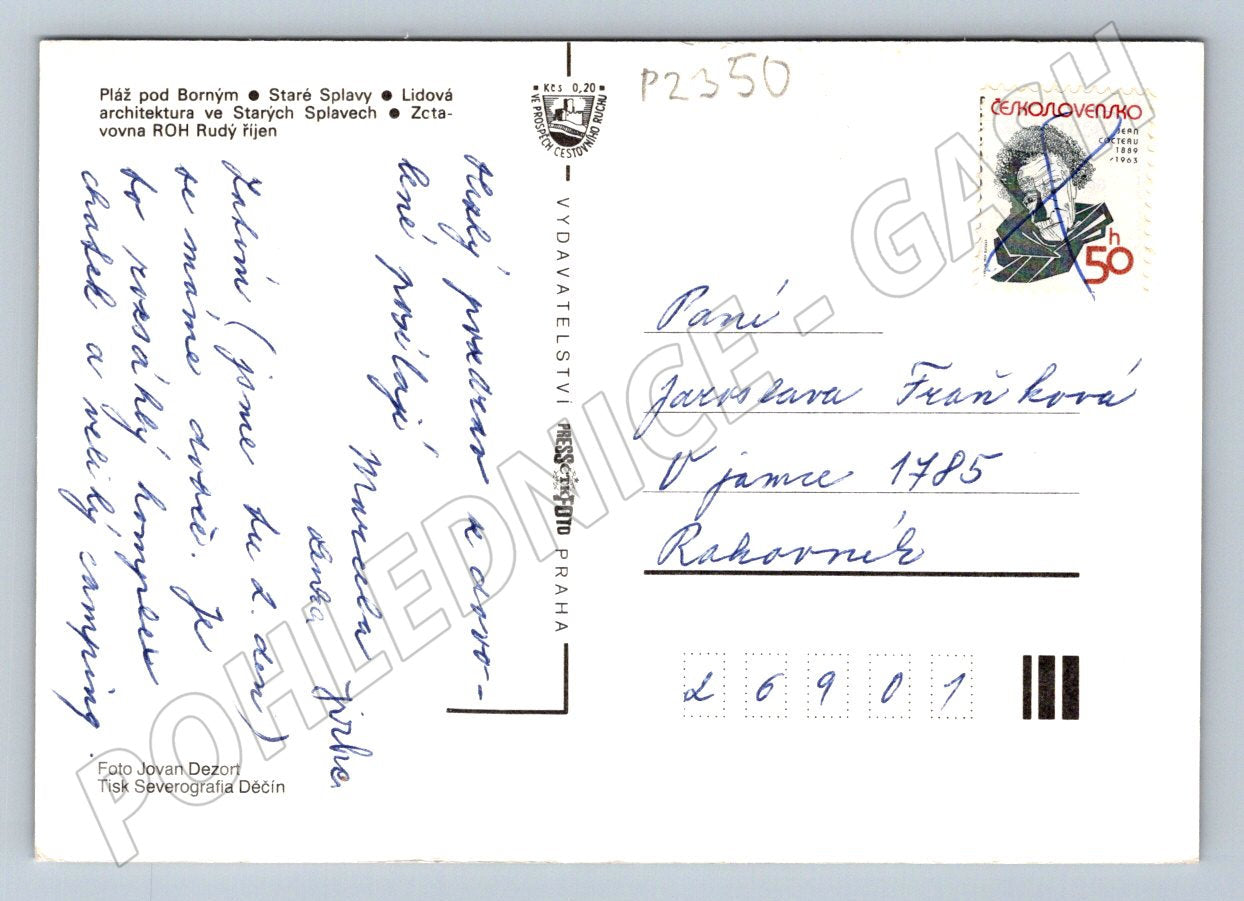 Pláž pod Borným ● Staré Splavy ● Lidová
architektura ve Starých Splavech ● Zota-
vovna ROH Rudý říjen
Kčs 0,20
VE PROSPĚCH CESTOVNÍHO RUCHU
P2350
ČESKOSLOVENSKO
JEAN
COCTEAU
1889
/1963
50 h
Hezký pozdrav z dovo-
lené posílají
Marcela Jirka
Lenka
Zatím (jsme tu 2. den)
se máme dobře. Je
to rozsáhlý komplex
chatek a veliký camping.
VYDAVATELSTVÍ PRESSFOTO PRAHA
ČTK
Paní
Jaroslava Fraňková
V jamce 1785
Rakovník
26901
Foto Jovan Dezort
Tisk Severografia Děčín
POHLEDNICE - GACH